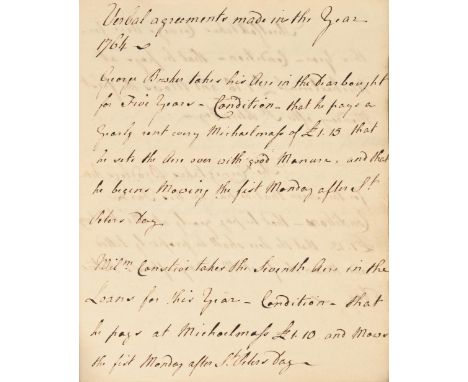 Verbal agreements made in the Year
1764
George Broker takes his Acre in the Dearbought
for Five Years - Condition - that he pays a
Yearly rent every Michaelmass of £1.15 that
he sets the Acre over with good Manure, and that
he begins Mowing the fist Monday after St
Peters Day
Wilm takes the Seventh Acre in the
Loans for this Year - Condition - that
he pays at Michaelmass £1.10 and Mows
the fist Monday after St. Peters Day -